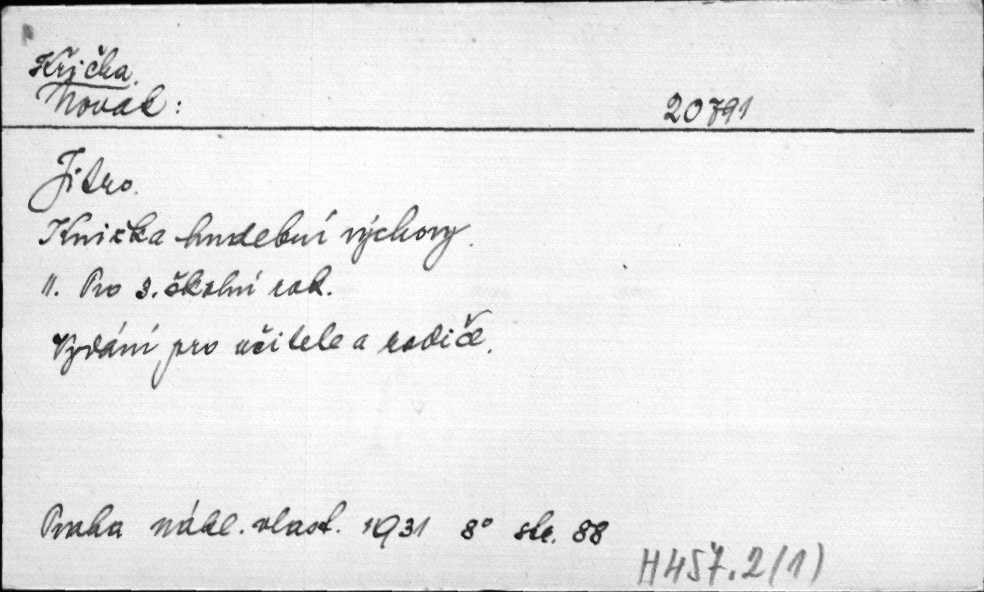 Křička.
Novák: 20791
Jitro.
Knížka hudební výchovy.
II. Pro 3. školní rok.
Vydání pro učitele a rodiče.
Praha nákl. vlast. 1931 8° str. 88
H457.2(1)